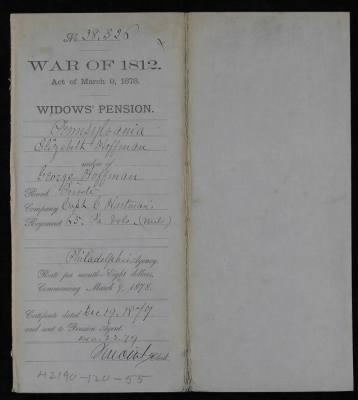 No 38,526
WAR OF 1812.
Act of March 9, 1878.
WIDOWS' PENSION.
Pennsylvania
Elizabeth Hoffman
widow of
George Hoffman
Rank Private
Company Capt C Hartman's
Regiment 65. Pa Vols (Mil)
Philadelphia Agency.
Rate per month—Eight dollars,
Commencing March 9, 1878.
Certificate dated Dec 19, 1879
and sent to Pension Agent
23.79
Clerk.
42190-120-55